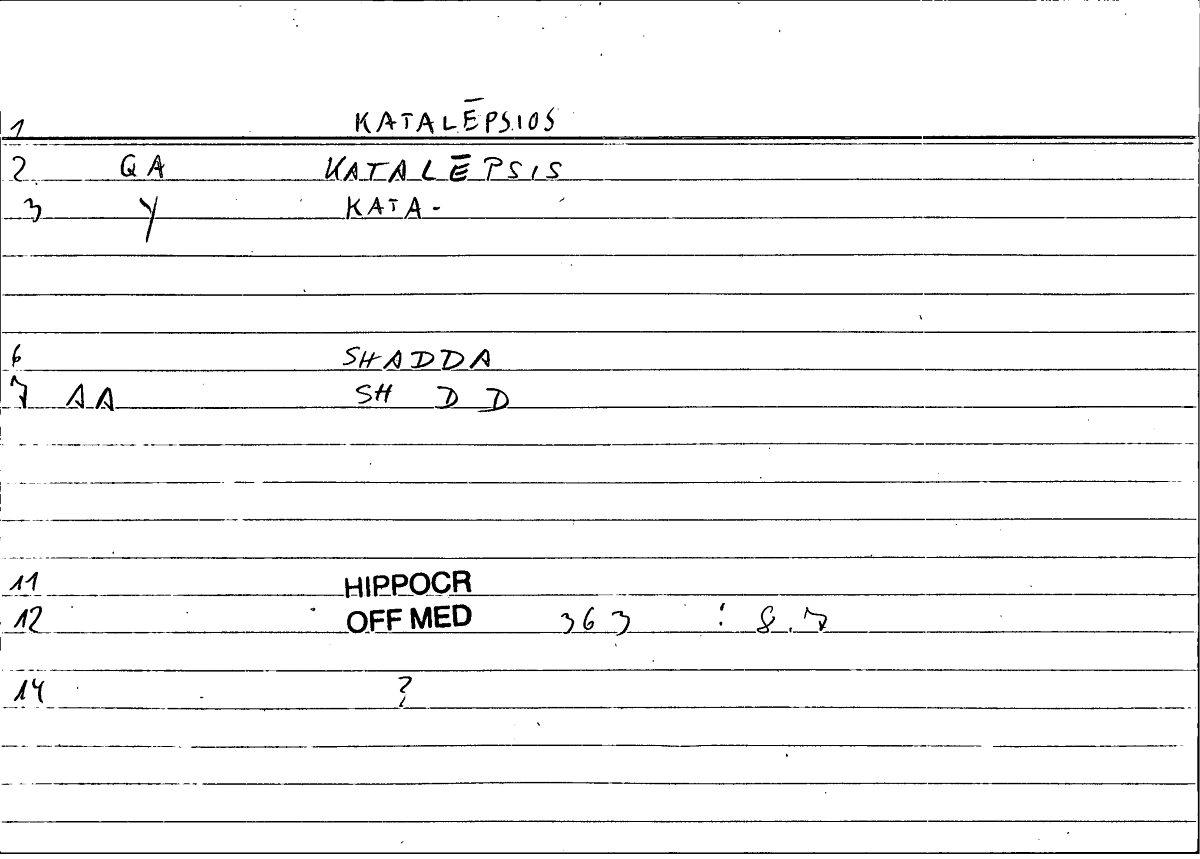 1 KATALĒPSIOS
2 QA KATALĒPSIS
3 Y KATA-
6 SHADDA
7 AA SH D D
11 HIPPOCR
12 OFF MED 363 : 8.7
14 ?